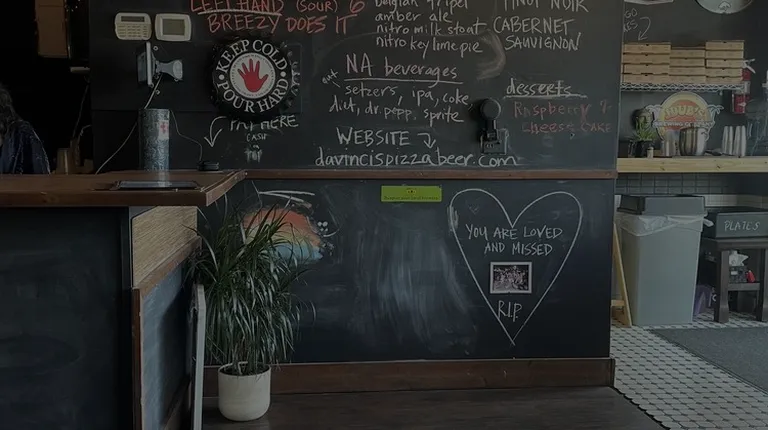 LEFT HAND (SOUR) 6
BREEZY DOES IT
belgian tripel
amber ale
nitro milk stout
nitro key lime pie
PINOT NOIR
CABERNET
SAUVIGNON
KEEP COLD
POUR HARD
NA beverages
setzers, ipa, coke,
diet, dr. pepp, sprite
desserts
Raspberry
cheese CAKE
PAY HERE
CASH
WEBSITE
davincispizzabeer.com
YOU ARE LOVED
AND MISSED
R.I.P.
PLATES